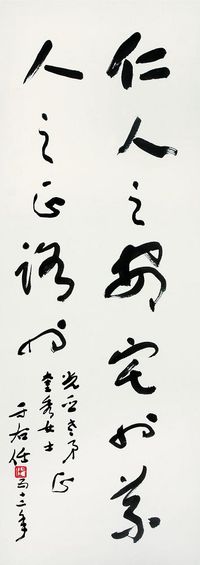 仁人之安宅也義
人之正路也
老弟
女士 正
于右任